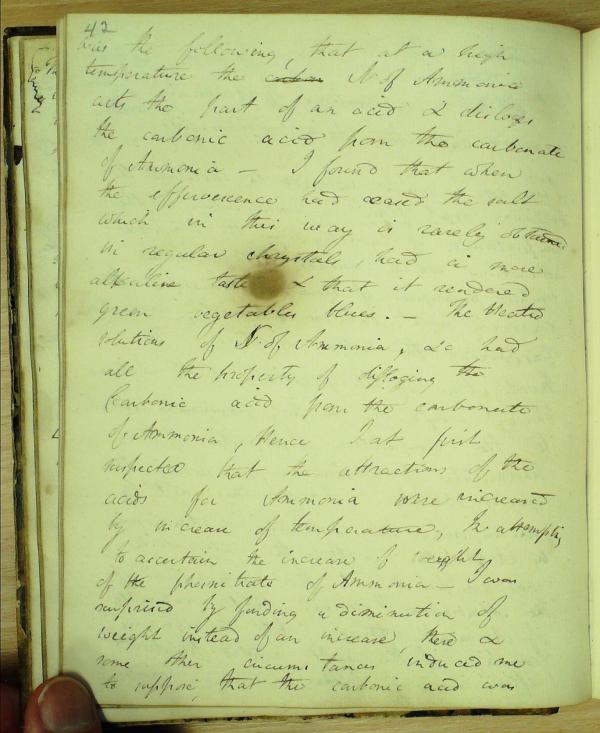 42
was the following, that at a high
temperature the carbon N of Ammonia
acts the part of an acid & disloges
the carbonic acid from the carbonate
of Ammonia — I found that when
the effervescence had ceased the salt
which in this way is rarely obtained
in regular chrystals, had a more
alkaline taste & that it rendered
green vegetables blues. — The heated
solutions of N. of Ammonia, &c had
all the property of disloging the
Carbonic acid from the carbonate
of Ammonia, Hence I at first
suspected that the attractions of the
acids for Ammonia were increased
by increase of temperature, In attempting
to ascertain the increase of weight
of the phosnitrate of Ammonia — I was
surprised by finding a diminution of
weight instead of an increase, this &
some other circumstances induced me
to suppose, that the carbonic acid was